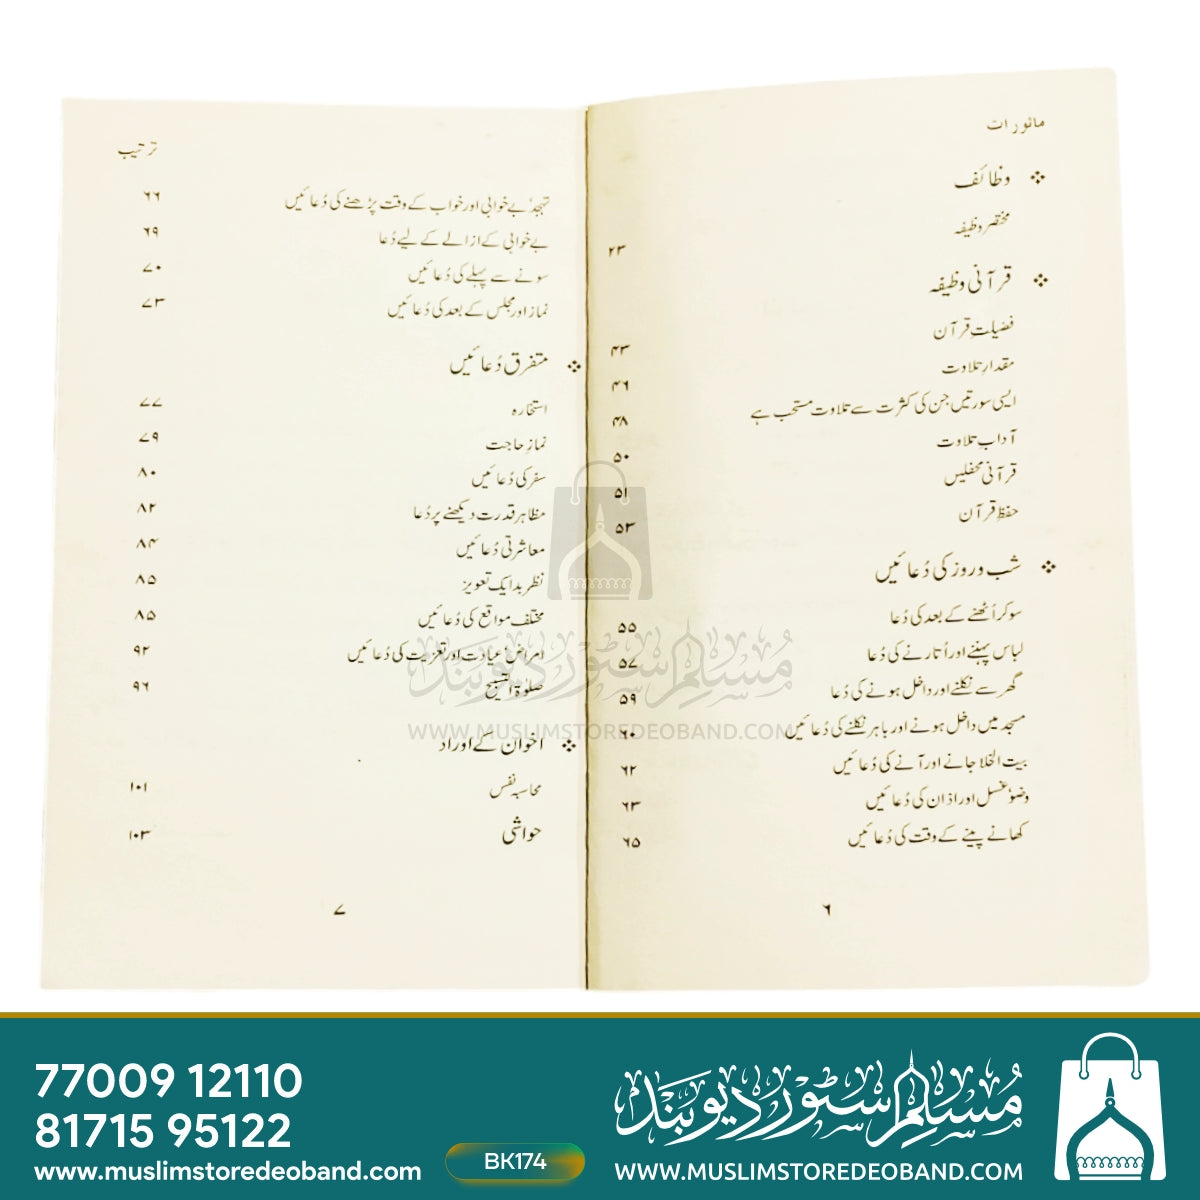 ماثورات
❖ وظائف
مختصر وظیفہ ۲۳
❖ قرآنی وظیفہ
فضیلتِ قرآن ۴۳
مقدارِ تلاوت ۴۶
ایسی سورتیں جن کی کثرت سے تلاوت مستحب ہے ۴۸
آداب تلاوت ۵۰
قرآنی محفلیں ۵۱
حفظِ قرآن ۵۳
❖ شب و روز کی دُعائیں
سو کر اُٹھنے کے بعد کی دُعا ۵۵
لباس پہننے اور اُتارنے کی دُعا ۵۷
گھر سے نکلنے اور داخل ہونے کی دُعا ۵۹
مسجد میں داخل ہونے اور باہر نکلنے کی دُعائیں ۶۰
بیت الخلا جانے اور آنے کی دُعائیں ۶۲
وضو، غسل اور اذان کی دُعائیں ۶۳
کھانے پینے کے وقت کی دُعائیں ۶۵
۶
ترتیب
تہجد، بے خوابی اور خواب کے وقت پڑھنے کی دُعائیں ۶۶
بے خوابی کے ازالے کے لیے دُعا ۶۹
سونے سے پہلے کی دُعائیں ۷۰
نماز اور مجلس کے بعد کی دُعائیں ۷۳
❖ متفرق دُعائیں
استخارہ ۷۷
نمازِ حاجت ۷۹
سفر کی دُعائیں ۸۰
مظاہر قدرت دیکھنے پر دُعا ۸۲
معاشرتی دُعائیں ۸۴
نظر بد ایک تعویز ۸۵
مختلف مواقع کی دُعائیں ۸۵
امراض، عیادت اور تعزیت کی دُعائیں ۹۲
صلوٰۃ التسبیح ۹۶
❖ اخوان کے اوراد
محاسبہ نفس ۱۰۱
حواشی ۱۰۳
۷
مسلم سٹور دیوبند
WWW.MUSLIMSTOREDEOBAND.COM
77009 12110
81715 95122
www.muslimstoredeoband.com
BK174
مسلم سٹور دیوبند
WWW.MUSLIMSTOREDEOBAND.COM